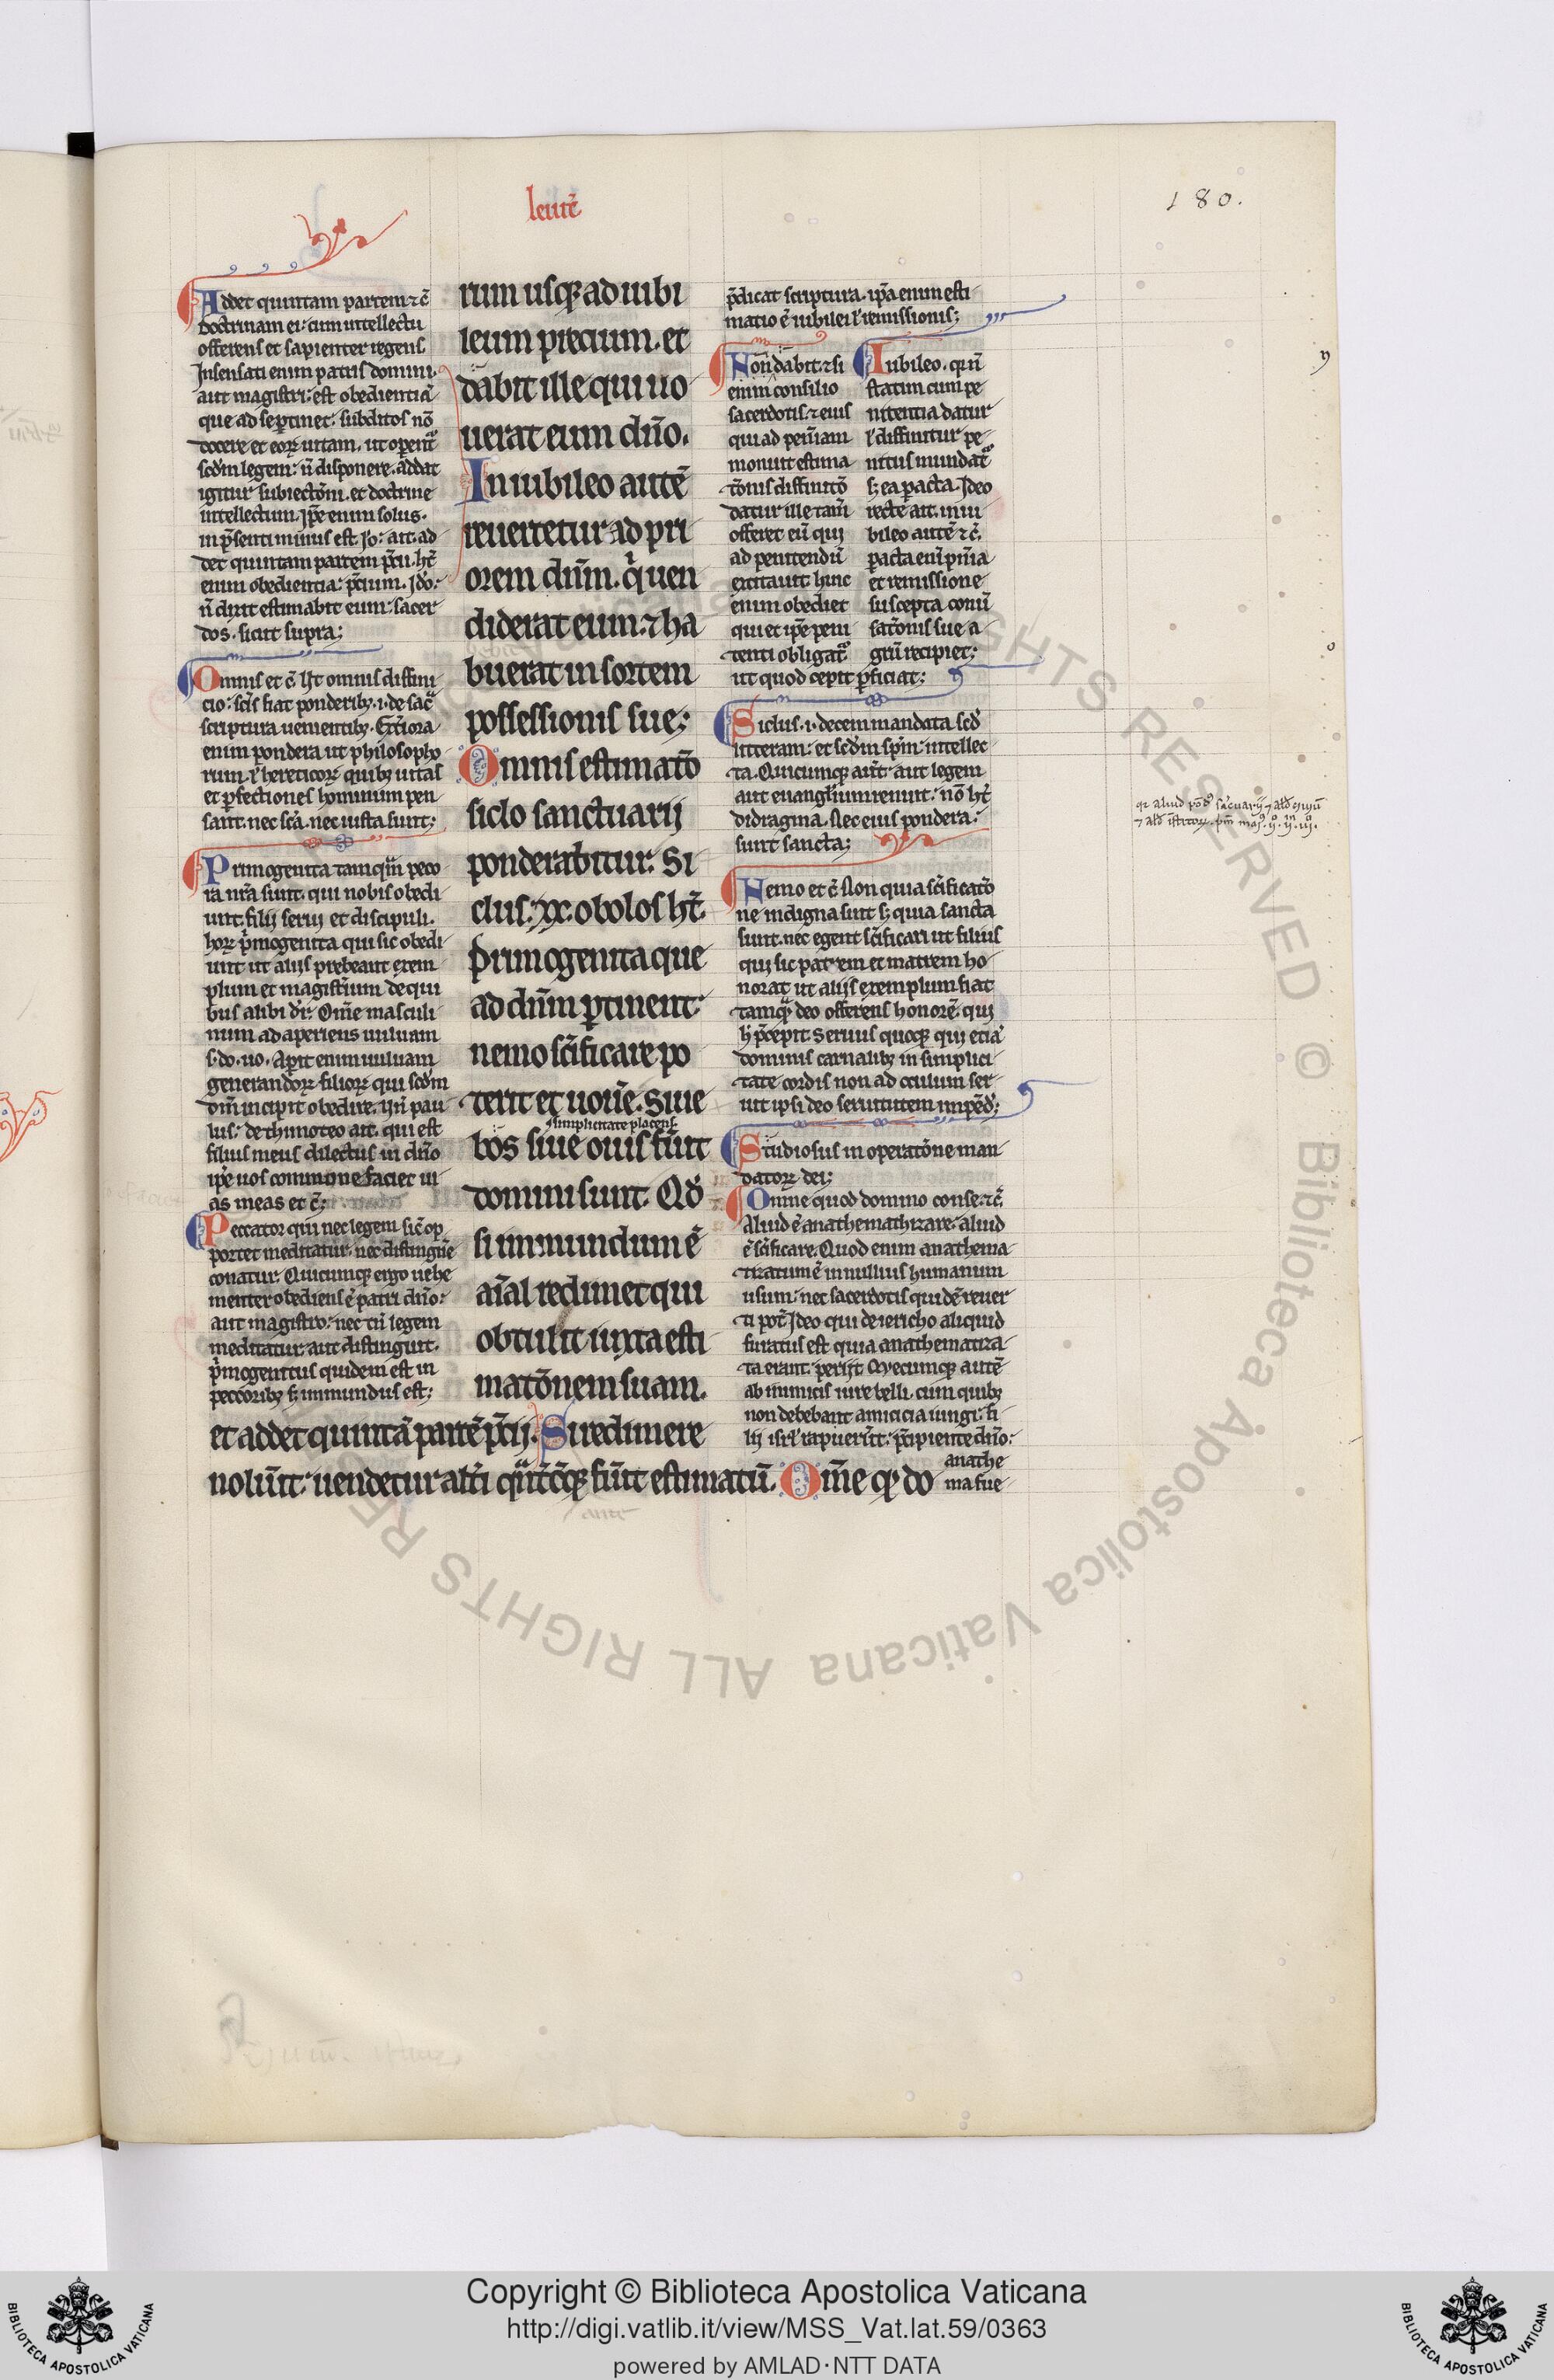 leuitẽ
180.
Addet quintam partem ⁊ c̃
doctrinam ei: cum intellectu
offerens et sapienter regens
Insensati enim patris domini.
aut magistri: est obedientiã
que ad se ꝑtinet: subditos nõ
docere et eoꝝ uitam. ut operent᷑
scd̃m legem: ñ disponere. addat
igitur subiectõni. et doctrine
intellectum. Ip̃e enim solus.
in p̃senti minus est. Io: ait. ad
det quintam partem p̃cii. hȓ
enim obedientia: p̃cium. Idõ:
ñ dixit estimabit eum: sacer
dos. sicut supra;
Omnis et c̃ Hȓ omnis diffini
cio: sc̃is fiat ponderibꝫ. i. de sac̃
scriptura uenientibꝫ. Ext̃iora
enim pondera ut philosopho
rum. ł hereticoꝝ quibꝫ uitas
et ꝑfectiones hominum pen
sant. nec sc̃a. nec iusta sunt;
Primogenita tamquã peco
ra nr̃a sunt. qui nobis obedi
unt. filij serui et discipuli.
hoꝝ p̃mogenita qui sic obedi
unt ut alijs prebeant exem
plum et magistr̃ium de qui
bus alibi dȓ: Om̃e masculi
num adaperiens uuluam
s. do. uo. Aꝑit enim uuluam
generandoꝝ filioꝝ qui scd̃m
dm̃ incipit obedire. ỹn pau
lus: de thimoteo ait. qui est
filius meus dilectus in dño
ip̃e uos commone faciet ui
as meas et c̃;
Peccator qui nec legem sic̃ op
portet meditatur. nec distinguẽ
conatur. Quicumqꝫ ergo uehe
menter obediens ẽ patri dño:
aut magistro: nec tñ legem
meditatur aut distinguit.
p̃mogenitus quidem est in
peccoribꝫ sꝫ immundus est;
rum usqꝫ ad iubi
leum precium. et
dabit ille qui uo
uerat eum dño.
In iubileo autẽ
reuertetur ad pri
orem dñm. q̃ uen
diderat eum. ⁊ ha
buerat in sortem
possessionis sue;
Omnis estimatõ
siclo sanctuarij
ponderabitur. Si
clus. xx. obolos hȓ.
Primogenita que
ad dñm ꝑtinent
nemo sc̃ificare po
terit et uouẽ. Siue
simplicitate placens.
bos siue ouis fũit
domini sunt. Qd̃
si immundum ẽ
aĩal redimet qui
obtulit iuxta esti
matõnem suam.
et addet quintã partẽ p̃cij. Si redimere
nolũit: uendetur alt̃i quãt̃cũqꝫ fũit estimatũ. Om̃e qꝫ do
p̃dicat scriptura. ip̃a enim esti
matio ẽ iubilei ł remissionis;
Non dabit. ⁊ si
enim consilio
sacerdotis. ⁊ eius
qui ad penĩam
monuit estima
tõnis diffinitõ
datur ille tam̃
offeret eũ qui
ad penitendũ
excitauit hunc
enim obediet
qui et ip̃e peni
tenti obligat᷑
ut quod cepit ꝑficiat;
Iubileo. qñ
statim cum pe
nitentia datur
ł diffinitur pe
nitus mundat᷑
sꝫ ea ꝑacta. Ideo
recte ait. in iu
bileo autẽ ⁊ c̃.
ꝑacta enĩ pñia
et remissione
suscepta conũ
satõnis sue a
grũ recipiet;
Siclus. i. decem mandata scd̃
litteram: et scd̃m sp̃m: intellec
ta. Quicumqꝫ aũt aut legem
aut euangl̃ium renuit: nõ hȓ
didragma. Nec eius pondera:
sunt sancta;
Nemo et c̃ Non quia sc̃ificatõ
ne indigna sunt sꝫ quia sancta
sunt. nec egent sc̃ificari ut filius
qui sic patrem et matrem ho
norat ut alijs exemplum fiat
tamqꝫ deo offerens honorẽ. qui
h̃ p̃cepit. Seruus quoqꝫ qui etiã
dominis carnalibꝫ in simplici
tate cordis non ad oculum ser
uit ipsi deo seruitutem impẽd;
Studiosus in operatõne man
datoꝝ dei;
Omne quod domino conse. ⁊ c̃
Aliud ẽ anathemathizare: aliud
ẽ sc̃ificare. Quod enim anathema
tizatum ẽ in nullius humanum
usum: nec sacerdotis quidẽ reuer
ti pot̃. Ideo qui de iericho aliquid
furatus est quia anathematiza
ta erant: perijt. Quecumqꝫ autẽ
ab inimicis iure belli. cum quibꝫ
non debebant amicicia iungi: fi
lij isrł rapuerũt: p̃cipiente dño:
anathe
ma fue
Copyright © Biblioteca Apostolica Vaticana
http://digi.vatlib.it/view/MSS_Vat.lat.59/0363
powered by AMLAD·NTT DATA
BIBLIOTECA APOSTOLICA VATICANA
BIBLIOTECA APOSTOLICA VATICANA
ALL RIGHTS RESERVED © Biblioteca Apostolica Vaticana